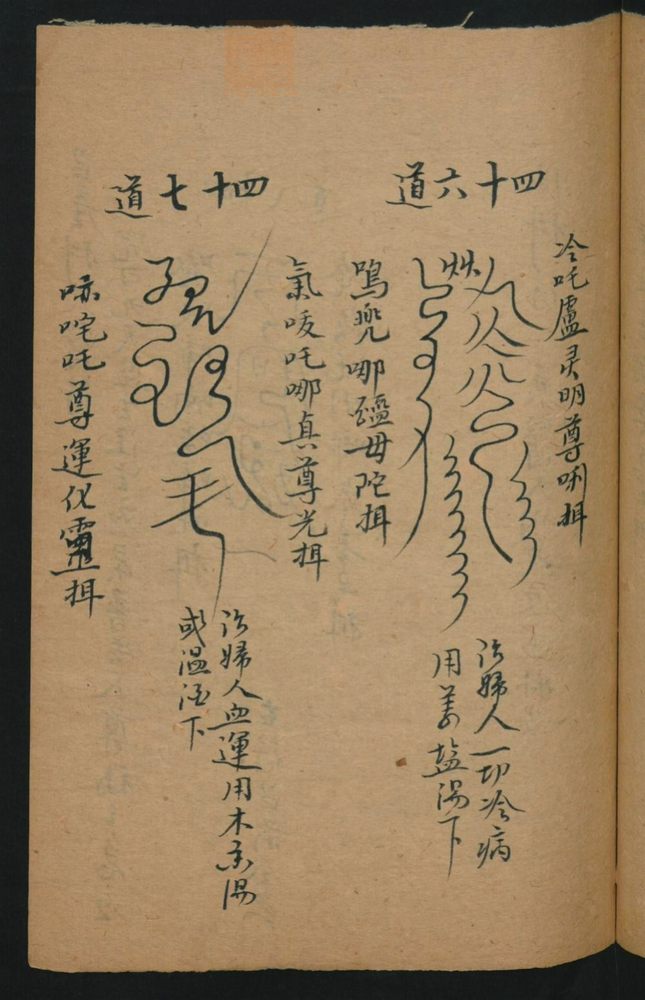 四十六道
冷吒盧灵明尊唎揖
鳴兜哪 毋陀揖
治婦人一切冷病
用姜盐湯下
四十七道
氣唆吒哪真尊光揖
咤吒尊運化靈揖
治婦人血運用木香湯
或温酒下